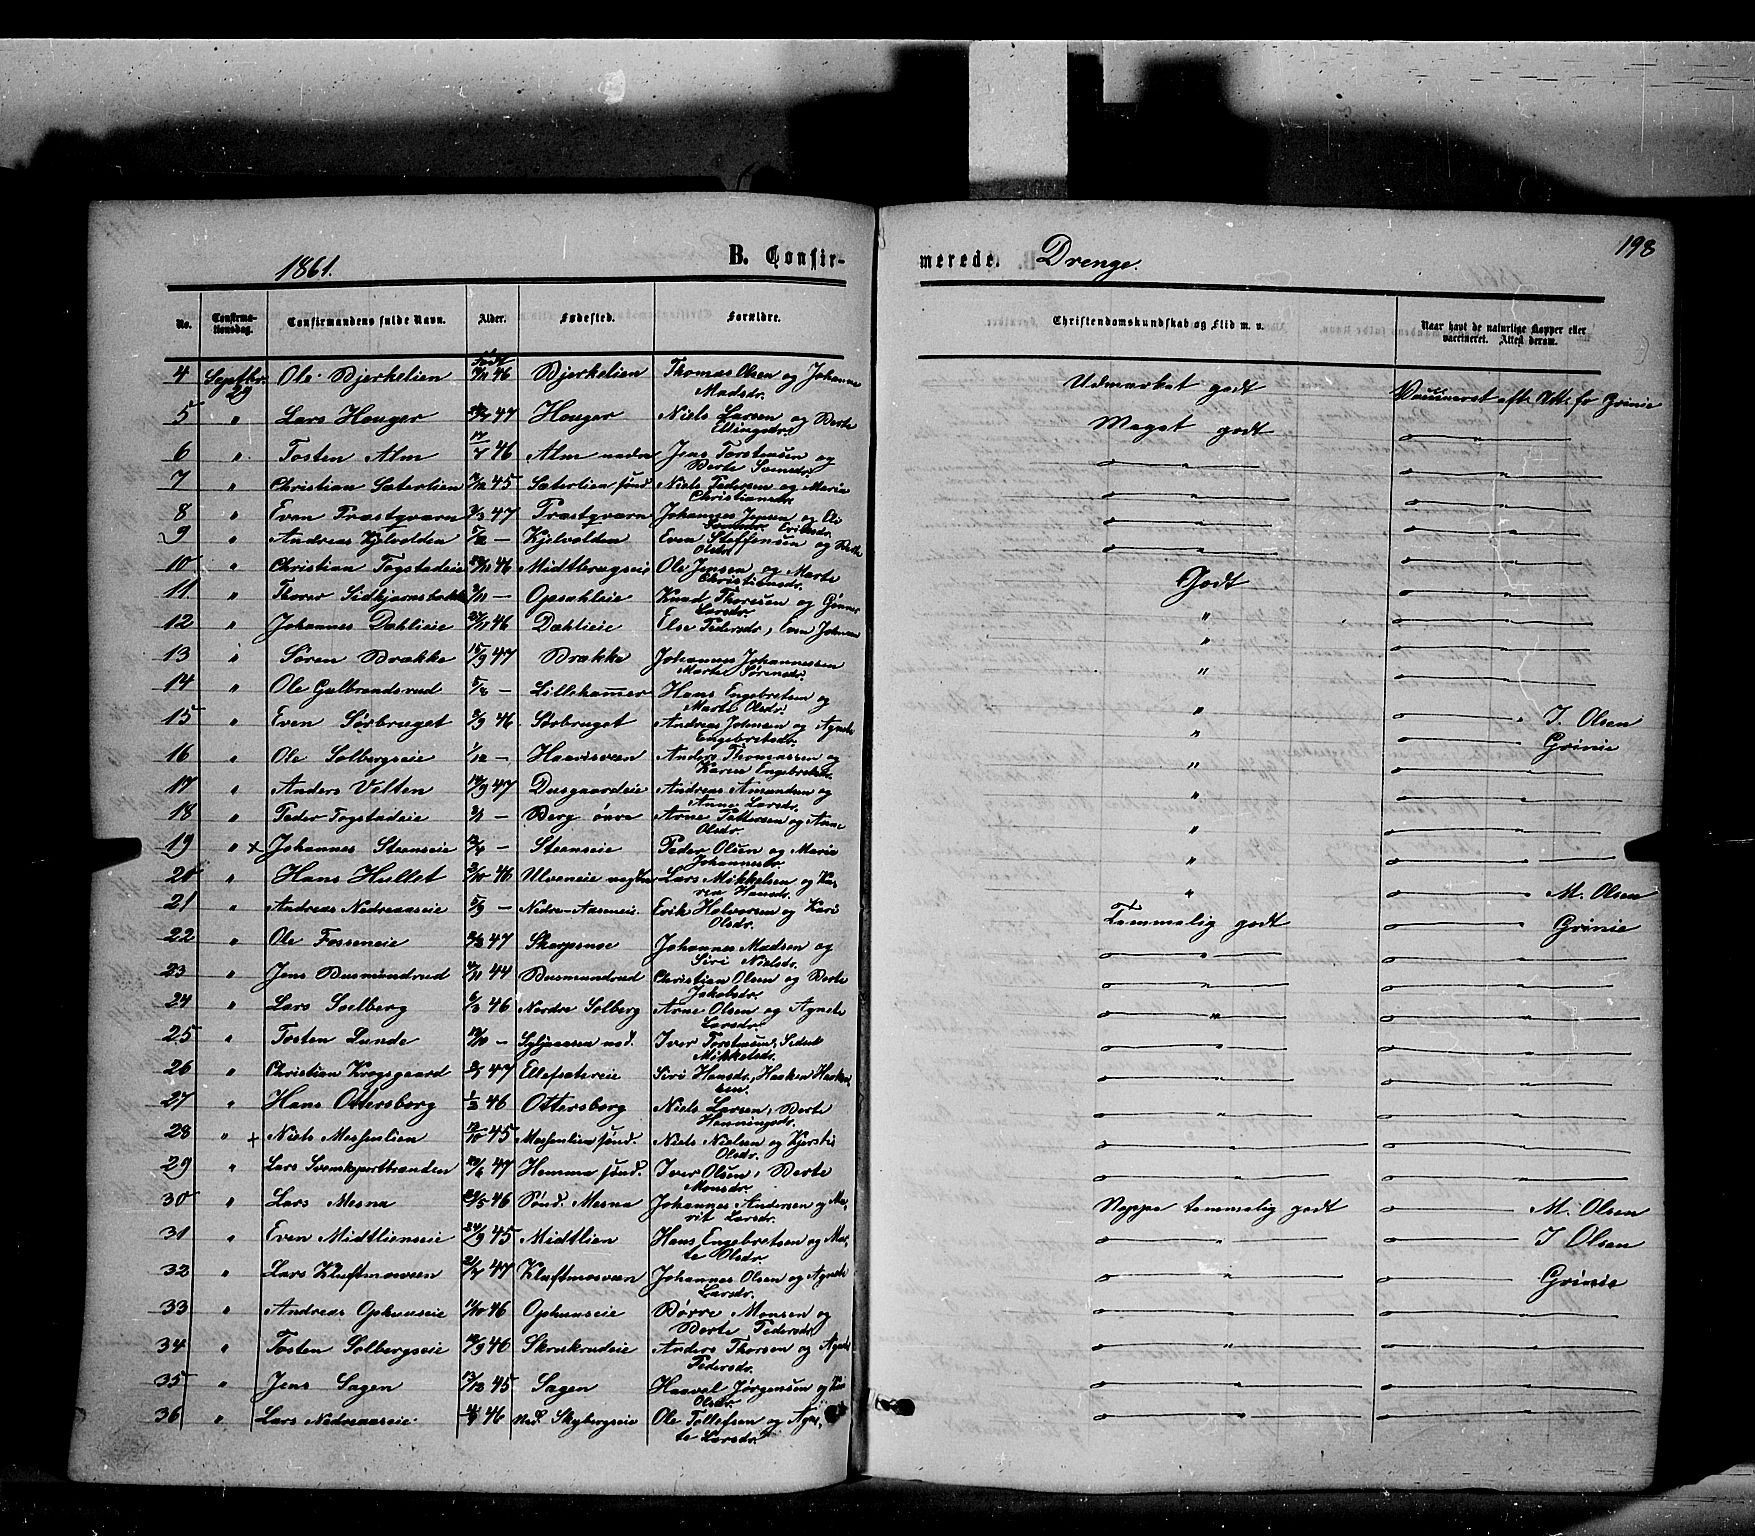 198
1861.
B. Confir-
merede Drenge.
No.
Confirma-
tionsdag.
Confirmandens fulde Navn.
Alder.
Fødested.
Forældre.
Christendomskundskab og Flid m. v.
Naar havt de naturlige Kopper eller
vaccineret. Attest derom.
4 Septbr. 29 Ole Bjerkelien Født 46 Bjerkelien Thomas Olsen og Johanne Madsdr. Udmærket godt Vaccineret eft. Att. fr Grinie
5 " Lars Houger 47 Houger Niels Larsen og Berte Ellingsdr. Meget godt
6 " Tosten Alm 46 Alm nedre Jens Torstensen og Berte
7 " Christian Sæterlien 45 Sæterlien sønd Niels Pedersen og Maria
8 " Even Præstqværn 2/3 47 Præstqværn Johannes Jensen og
9 " Andreas Kjelvolden - Kjelvolden Even Steffensen og Berte Olsdr.
10 " Christian Togstadeie 46 Midtbrugseie Ole Jensen og Marte Christiansdr.
11 " Thorer - Opsahleie Knud Thoresen og Larsdr. Godt
12 " Johannes Dæhlieie 46 Dæhlieie Else Pedersdr, Even Johnsen "
13 " Søren Brække 15/9 47 Brække Johannes Johannessen Marte Sørensdr. "
14 " Ole Gulbrandsrud - Lillehamer Hans Engebretsen og Marte Olsdr. "
15 " Even Sørbruget 46 Sørbruget Andreas Johnsen og Agnete Engebretsdr. " I. Olsen
16 " Ole Solbergseie 1/12 - Haarisveen Anders Thomassen og Karen Engebretsdr. " Grinie
17 " Anders Velten 47 Dusgaardeie Andreas Amundsen og Anne Larsdr. "
18 " Peder Togstadeie - Berg øvre Arne Pettersen og Anne Olsdr. "
19 " x Johannes Steenseie - Steenseie Peder Olsen og Maria "
20 " Hans Hullet 46 Ulveneie Lars Mikkelsen og Karen Hansdr. "
21 " Andreas Nedreaaseie 5/9 - Nedre-Aaseneie Erik Halvorsen og Kari Olsdr. " M. Olsen
22 " Ole Fosseneie 47 Skarpsnoe Johannes Madsen og Siri Nielsdr. Temmelig godt Grinie
23 " Jens Busmundrud 44 Busmundrud Christian Olsen og Berte Jakobsdr.
24 " Lars Soelberg 46 Nordre Solberg Arne Olsen og Agnete Larsdr.
25 " Tosten Lunde - Iver Torstensen, Mikkelsdr.
26 " Christian Krogsgaard 47 Ellefsætereie Siri Hansdr., Haaken Haakensen.
27 " Hans Ottersborg 46 Ottersborg Niels Larsen, Berte Henningsdr.
28 " + Niels Messenlien 45 Messenlien sønd. Niels Nielsen og Kjersti Olsdr.
29 " Lars 47 Hemma sønd. Iver Olsen, Berte Monsdr.
30 " Lars Mesna 46 Sønd. Mesna Johannes Andersen og Marit Larsdr. Noppe temmelig godt M. Olsen
31 " Even Midtlienseie 24/9 45 Midtlien Hans Engebretsen og Marte Olsdr. I Olsen
32 " Lars Kluftmosveen 47 Kluftmosveen Johannes Olsen og Agnete Larsdr. Grinie
33 " Andreas Ophuuseie 46 Ophuuseie Børre Monsen og Berte Pedersdr.
34 " Tosten Solbergseie 46 Skrukrudeie Anders Thorsen og Agnete Pedersdr.
35 " Jens Sagen 13/12 45 Sagen Haavel Jørgensen og Olsdr.
36 " Lars Nedreaaseie 46 Ned. Skybergseie Ole Tollefsen og Agnete Larsdr.